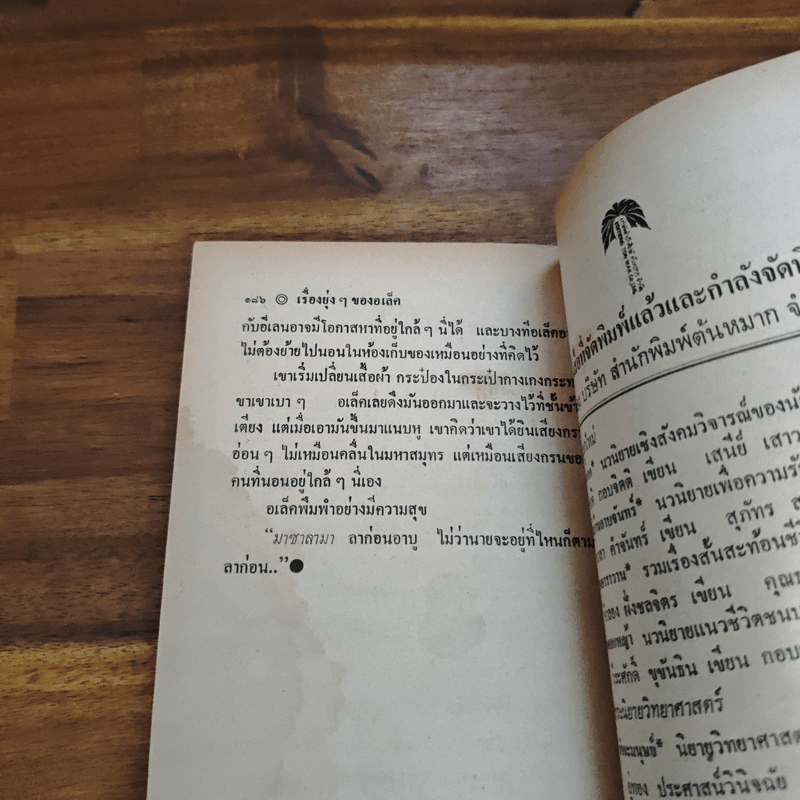 ๑๘๖ ◎ เรื่องยุ่ง ๆ ของอเล็ค
กับอีเลนอาจมีโอกาสหาที่อยู่ใกล้ ๆ นี้ได้ และบางทีอเล็ค
ไม่ต้องย้ายไปนอนในห้องเก็บของเหมือนอย่างที่คิดไว้
เขาเริ่มเปลี่ยนเสื้อผ้า กระป๋องในกระเป๋ากางเกงกระ
ขาเขาเบา ๆ อเล็คเลยดึงมันออกมาและจะวางไว้ที่ชั้นข้าง
เตียง แต่เมื่อเอามันขึ้นมาแนบหู เขาคิดว่าเขาได้ยินเสียง
อ่อน ๆ ไม่เหมือนคลื่นในมหาสมุทร แต่เหมือนเสียงกรนของ
คนที่นอนอยู่ใกล้ ๆ นี่เอง
อเล็คพึมพำอย่างมีความสุข
“มาซาลามา ลาก่อนอาบู ไม่ว่านายจะอยู่ที่ไหนก็ตาม
ลาก่อน..”●
ที่จัดพิมพ์แล้วและกำลังจัด
บริษัท สำนักพิมพ์ต้นหมาก
นวนิยายเชิงสังคมวิจารณ์ของ
กอบจิตติ เขียน เสนีย์
นวนิยายเพื่อความรัก
คำจันทร์ เขียน สุภัทร
รวมเรื่องสั้นสะท้อนชีวิต
ฝั่งชลจิตร เขียน
นวนิยายแนวชีวิตชนบท
ขุขันธิน เขียน กอบ
นิยายวิทยาศาสตร์
นิยายวิทยาศาสตร์
ประศาสน์วินิจฉัย